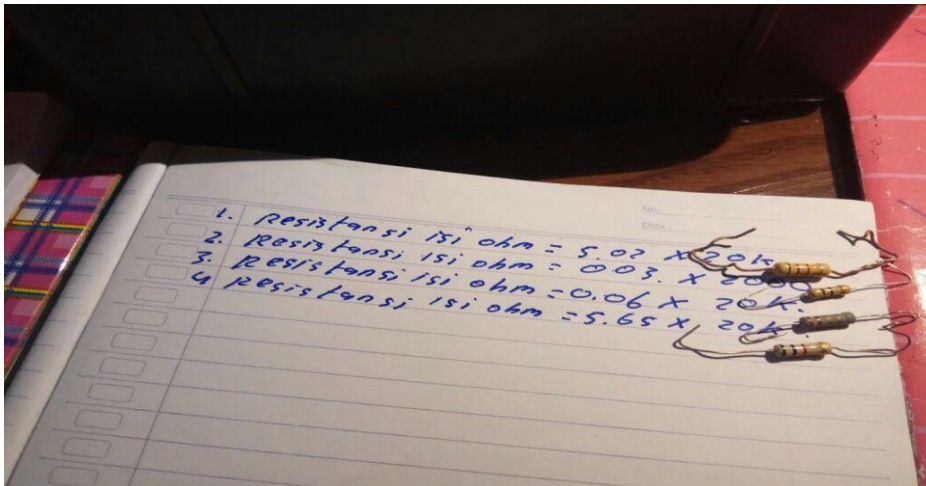 No.
Date
1. Resistansi isi ohm = 5.02 X 20K
2. Resistansi isi ohm = 003. X 2000
3. Resistansi isi ohm = 0.06 X 20K.
4 Resistansi isi ohm = 5.65 X 20K.